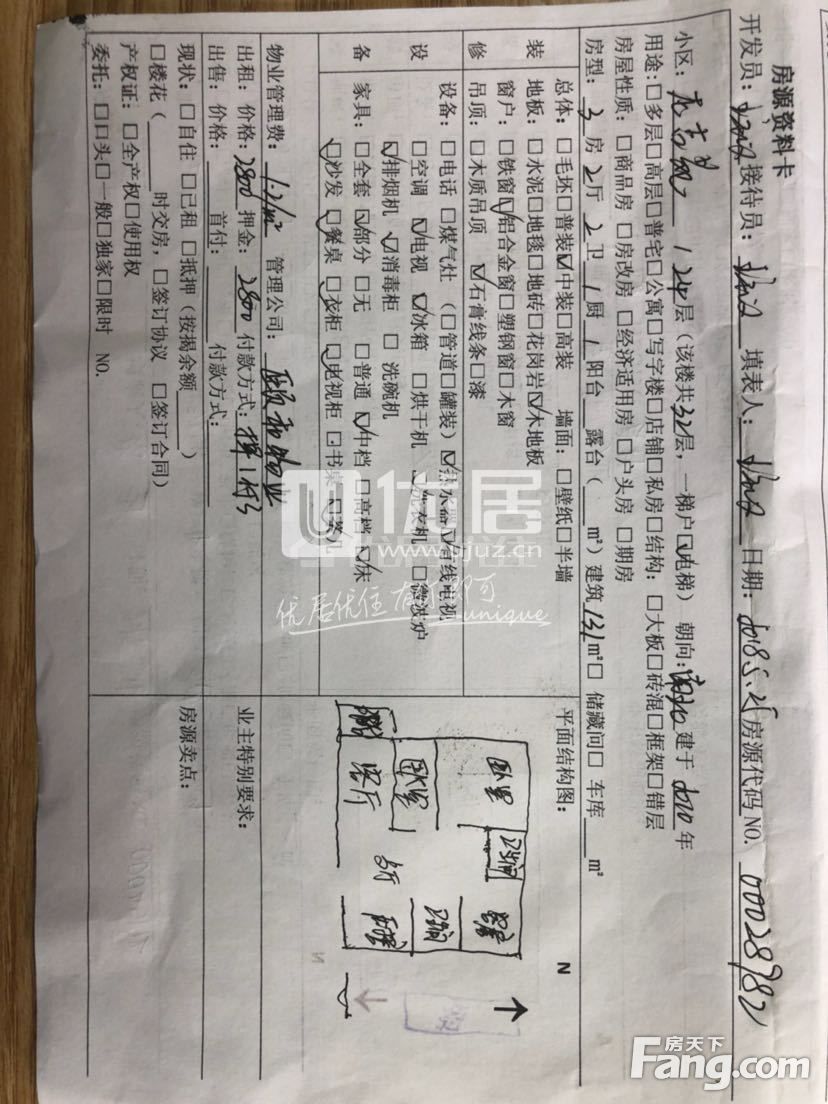 房源资料卡
开发员: 接待员: 填表人: 日期: 2018.5.25 房源代码 NO. 00028982
小区: 24层(该楼共32层,一梯 户☑电梯) 朝向:南北 建于2010年
用途:□多层□高层□普宅□公寓□写字楼□店铺□私房□结构: □大板□砖混□框架□错层
房屋性质: □商品房 □房改房 □经济适用房 □户头房 □期房
房型: 3房 2厅 2卫 1厨 1阳台 露台( m²) 建筑131m²□ 储藏间□ 车库 m²
装 修 设 备
总体: □毛坯□普装☑中装□高装 墙面: □壁纸□半墙
地板: □水泥□地毯□地砖□花岗岩☑木地板
窗户: □铁窗☑铝合金窗□塑钢窗□木窗
吊顶: □木质吊顶 ☑石膏线条□漆
设备: □电话□煤气灶 (□管道□罐装) ☑热水器☑有线电视
□空调 ☑电视 ☑冰箱 □烘干机 ☑洗衣机 □微波炉
☑排烟机 ☑消毒柜 □洗碗机
家具: □全套 ☑部分 □无 □普通 ☑中档 □高档 ☑床
☑沙发 ☑餐桌 ☑衣柜 ☑电视柜 □书桌 ☑茶几
平面结构图:
N
卧室
卫生间
卧室
客厅
厨房
物业管理费: 管理公司: 颐和物业
出租: 价格: 2800 押金: 2800 付款方式: 押1付3
出售: 价格: 首付: 付款方式:
业主特别要求:
现状: □自住 □已租 □抵押 (按揭余额 )
□楼花 ( 时交房, □签订协议 □签订合同)
产权证: □全产权□使用权
委托: □口头□一般□独家□限时 NO.
房源卖点:
优居
www.ujuz.cn
优居优住 有何不可
unique
房天下
Fang.com